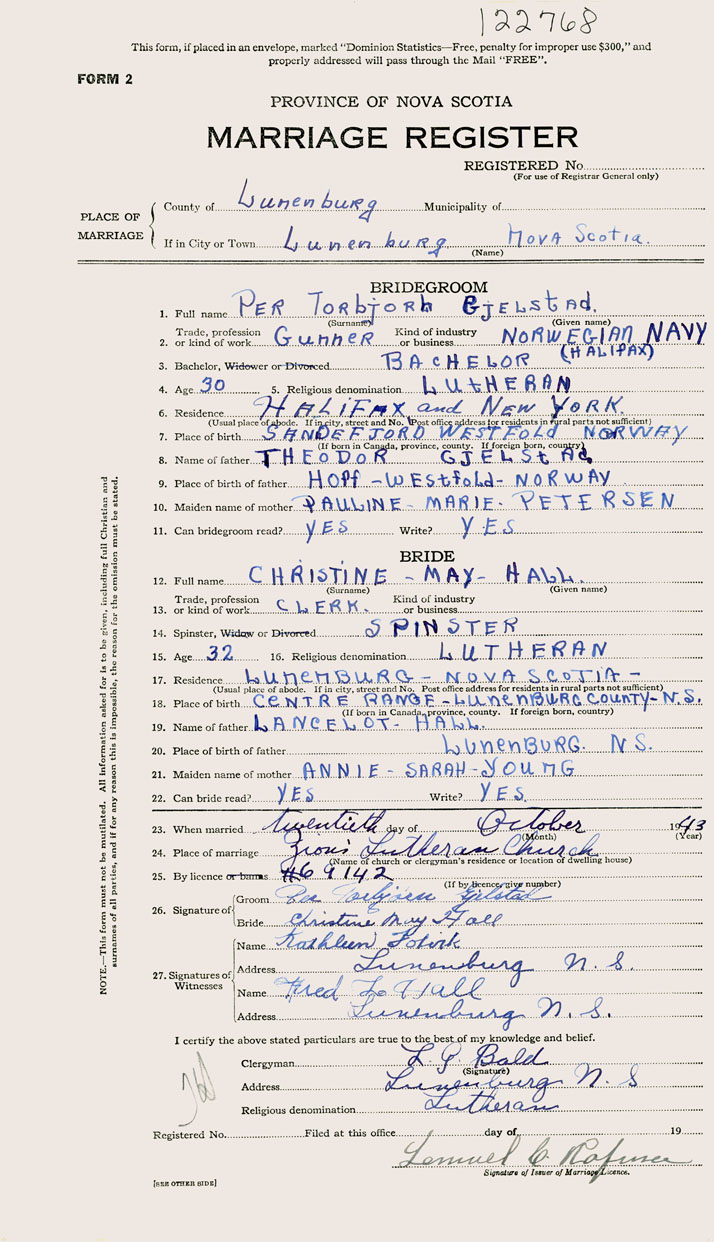 122768
This form, if placed in an envelope, marked "Dominion Statistics—Free, penalty for improper use $300," and
properly addressed will pass through the Mail "FREE".
FORM 2
PROVINCE OF NOVA SCOTIA
MARRIAGE REGISTER
REGISTERED No.
(For use of Registrar General only)
PLACE OF MARRIAGE
County of Lunenburg Municipality of
If in City or Town Lunenburg Nova Scotia.
(Name)
BRIDEGROOM
1. Full name PER Torbjorn Gjelstad.
(Surname) (Given name)
2. Trade, profession or kind of work Gunner Kind of industry or business NORWEGIAN NAVY
(HALIFAX)
3. Bachelor, Widower or Divorced BACHELOR
4. Age 30 5. Religious denomination LUTHERAN
6. Residence HALIFAX and NEW YORK.
(Usual place of abode. If in city, street and No. Post office address for residents in rural parts not sufficient)
7. Place of birth SANDEFJORD WESTFOLD NORWAY
(If born in Canada, province, county. If foreign born, country)
8. Name of father THEODOR GJELStAd
9. Place of birth of father HOPF - WEStfold - NORWAY
10. Maiden name of mother PAULINE - MARIE - PETERSEN
11. Can bridegroom read? YES Write? YES
BRIDE
12. Full name CHRISTINE - MAY - HALL.
(Surname) (Given name)
13. Trade, profession or kind of work CLERK. Kind of industry or business
14. Spinster, Widow or Divorced SPINSTER
15. Age 32 16. Religious denomination LUTHERAN
17. Residence LUNENBURG - NOVA SCOTIA -
(Usual place of abode. If in city, street and No. Post office address for residents in rural parts not sufficient)
18. Place of birth CENTRE RANGE - LUNENBURG COUNTY - N.S.
(If born in Canada, province, county. If foreign born, country)
19. Name of father LANCELOT - HALL.
20. Place of birth of father LUNENBURG. N S.
21. Maiden name of mother ANNIE - SARAH - YOUNG
22. Can bride read? YES Write? YES
23. When married twentieth day of October 1943
(Month) (Year)
24. Place of marriage Zion's Lutheran Church
(Name of church or clergyman's residence or location of dwelling house)
25. By licence or banns #69142
(If by licence, give number)
26. Signature of Groom Per Torbjörn Gjelstad
Bride Christine May Hall
27. Signatures of Witnesses Name Kathleen
Address Lunenburg N. S.
Name Fred L Hall
Address Lunenburg N. S.
I certify the above stated particulars are true to the best of my knowledge and belief.
Clergyman L. G. Bald
(Signature)
Address Lunenburg N. S
Religious denomination Lutheran
Registered No. Filed at this office day of 19
Lemuel C. Rafuse
Signature of Issuer of Marriage Licence.
[SEE OTHER SIDE]
NOTE.—This form must not be mutilated. All information asked for is to be given, including full Christian and
surnames of all parties, and if for any reason this is impossible, the reason for the omission must be stated.